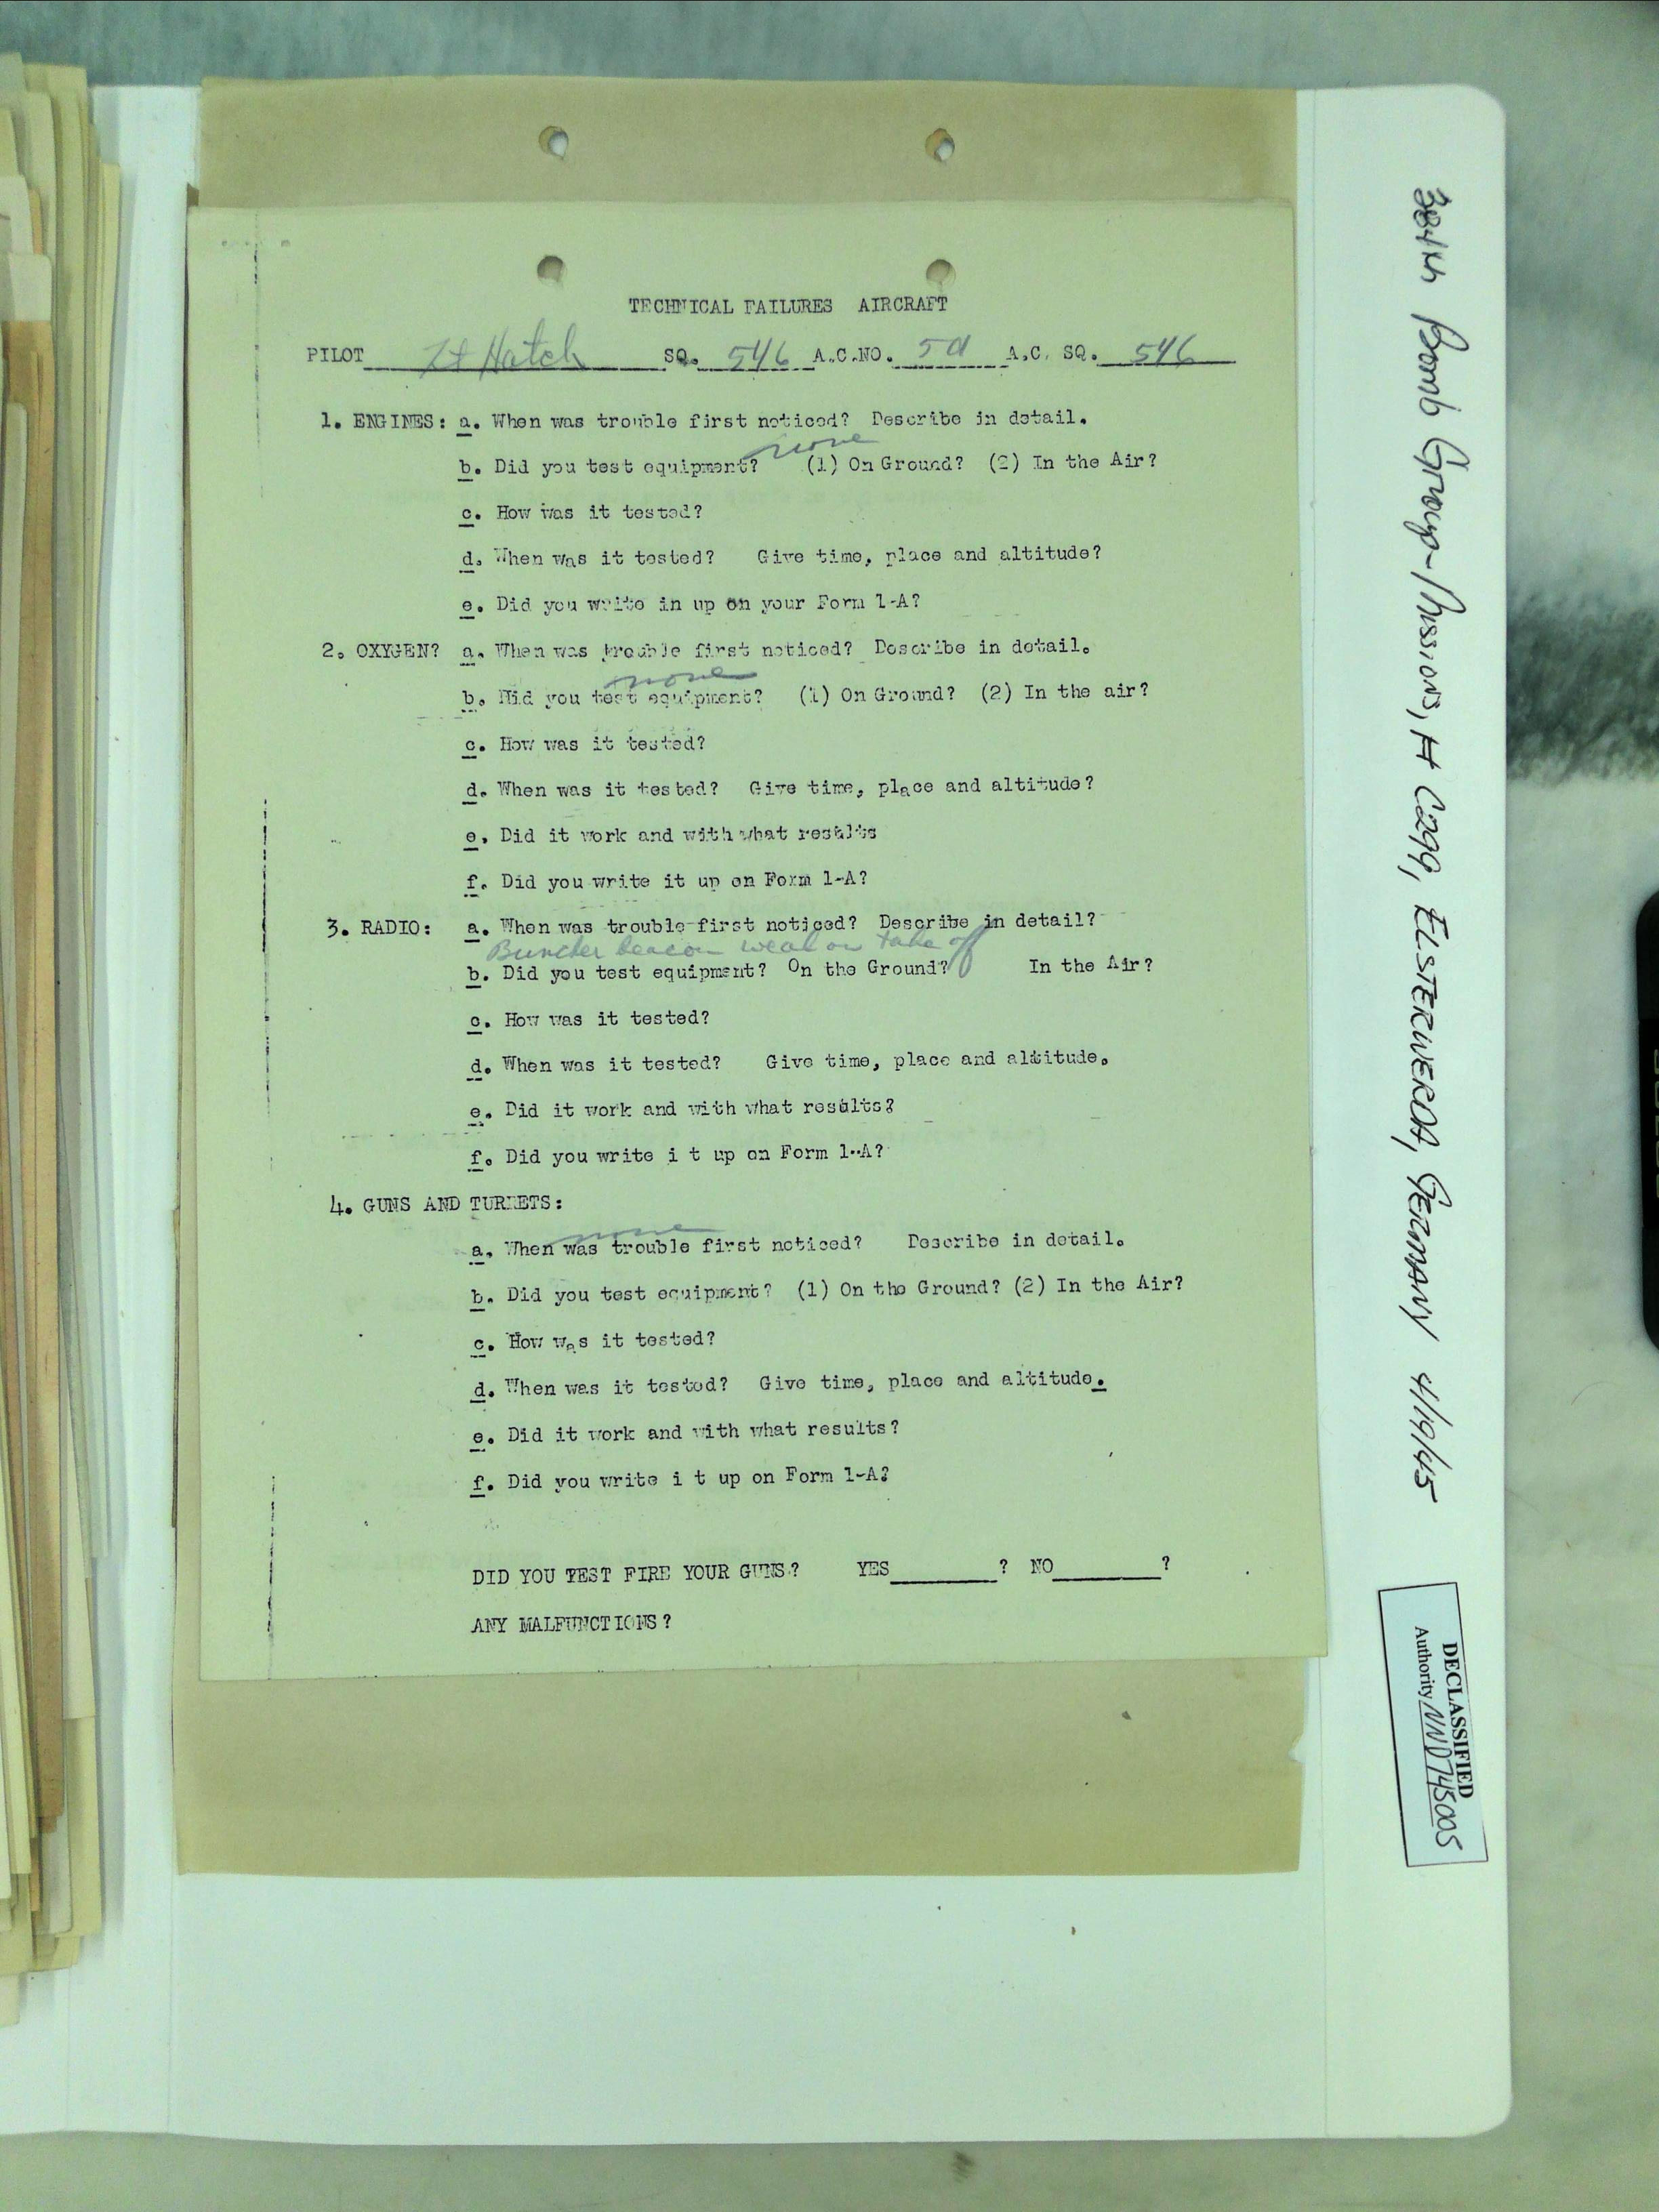 TECHNICAL FAILURES AIRCRAFT
PILOT Lt Hatch SQ. 546 A.C.NO. A.C. SQ. 546
1. ENGINES: a. When was trouble first noticed? Describe in detail.
none
b. Did you test equipment? (1) On Ground? (2) In the Air?
c. How was it tested?
d. When was it tested? Give time, place and altitude?
e. Did you write in up on your Form 1-A?
2. OXYGEN? a. When was trouble first noticed? Describe in detail.
none
b. Did you test equipment? (1) On Ground? (2) In the air?
c. How was it tested?
d. When was it tested? Give time, place and altitude?
e. Did it work and with what results
f. Did you write it up on Form 1-A?
3. RADIO: a. When was trouble first noticed? Describe in detail?
Buncher beacon weak on take off
b. Did you test equipment? On the Ground? In the Air?
c. How was it tested?
d. When was it tested? Give time, place and altitude.
e. Did it work and with what results?
f. Did you write i t up on Form 1-A?
4. GUNS AND TURRETS:
none
a. When was trouble first noticed? Describe in detail.
b. Did you test equipment? (1) On the Ground? (2) In the Air?
c. How was it tested?
d. When was it tested? Give time, place and altitude.
e. Did it work and with what results?
f. Did you write i t up on Form 1-A?
DID YOU TEST FIRE YOUR GUNS? YES ? NO ?
ANY MALFUNCTIONS?
384th Bomb Group-Missions, # C299, ELSTERWERDA, GERMANY 4/19/45
DECLASSIFIED
Authority NND745005